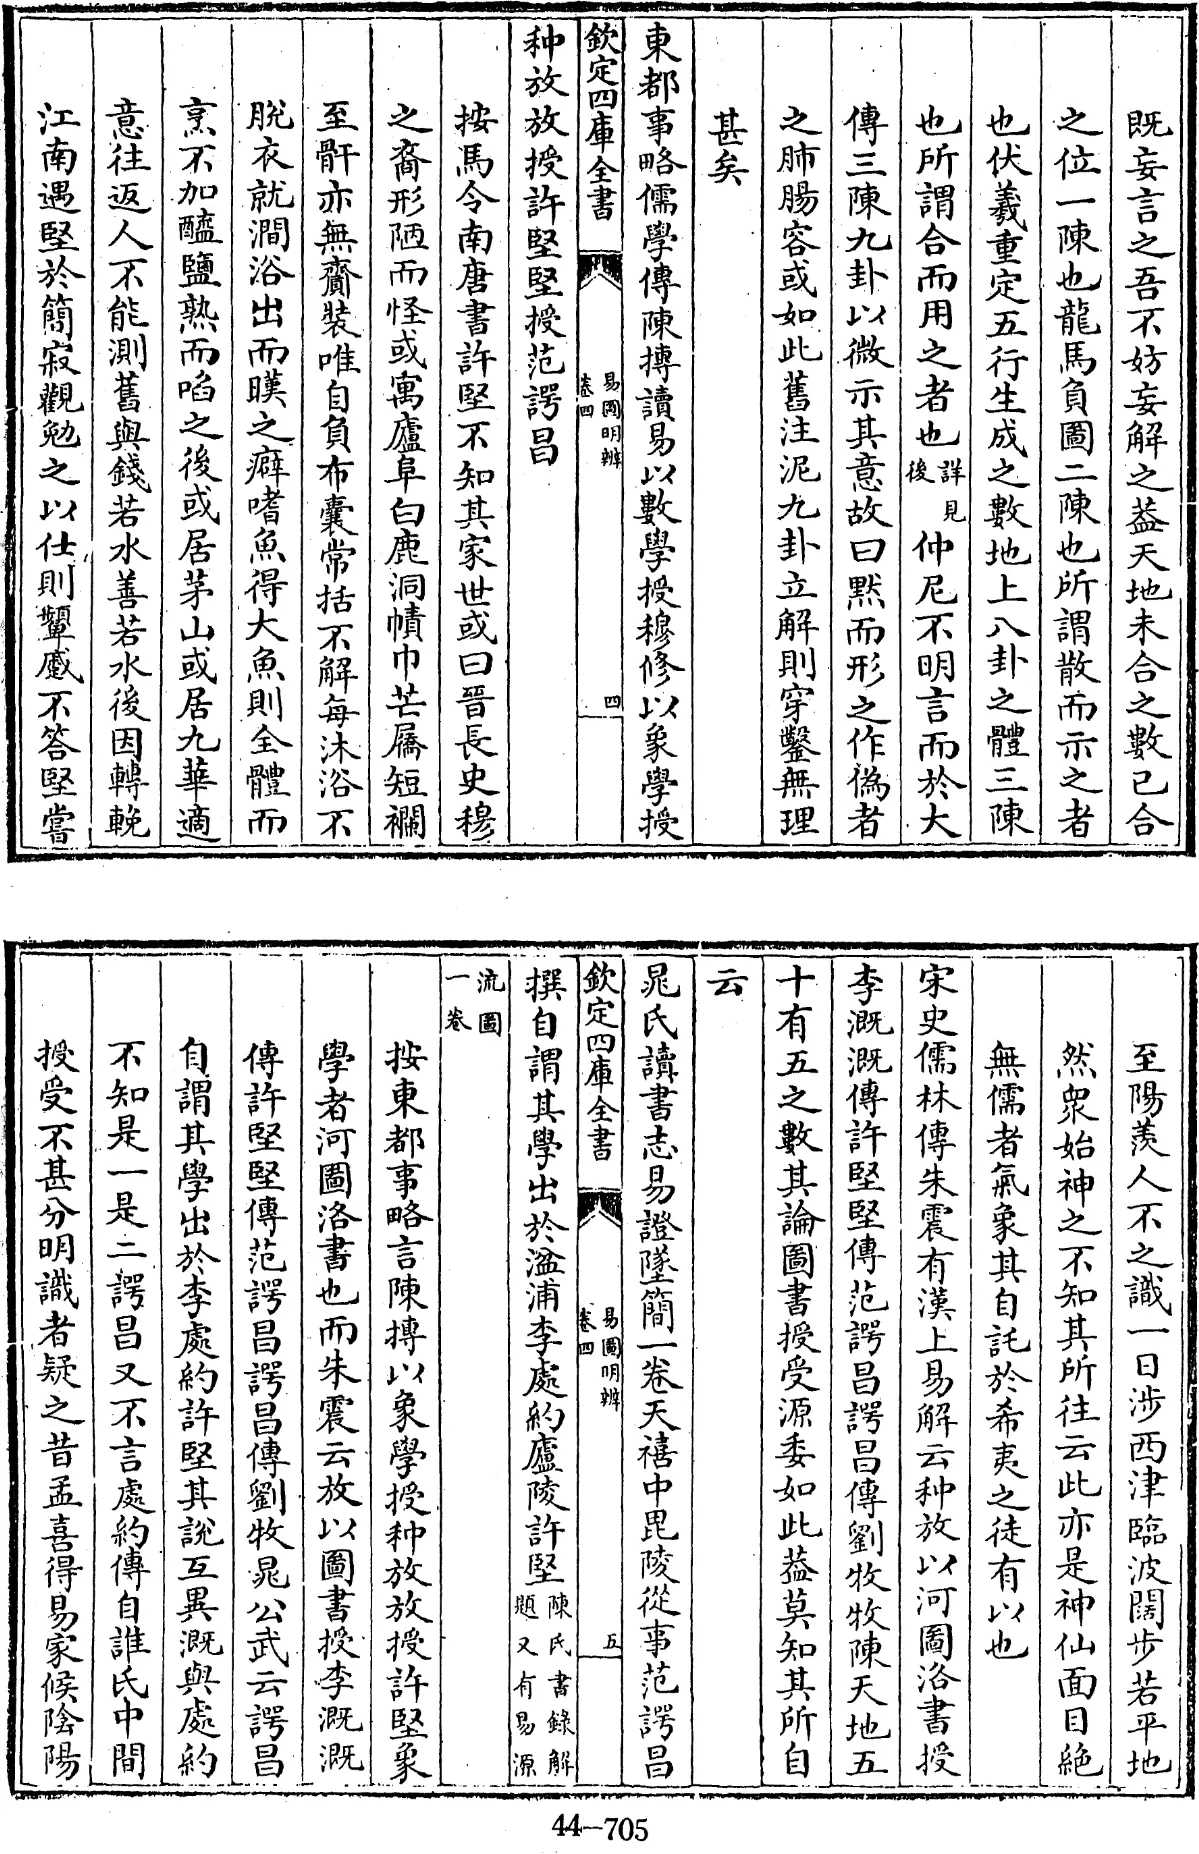 既妄言之吾不妨妄解之葢天地未合之數已合
之位一陳也龍馬負圖二陳也所謂散而示之者
也伏羲重定五行生成之數地上八卦之體三陳
也所謂合而用之者也詳見後仲尼不明言而於大
傳三陳九卦以微示其意故曰默而形之作偽者
之肺腸容或如此舊注泥九卦立解則穿鑿無理
甚矣
東都事略儒學傳陳摶讀易以數學授穆修以象學授
欽定四庫全書
易圖明辨
卷四
四
种放放授許堅堅授范諤昌
按馬令南唐書許堅不知其家世或曰晉長史穆
之裔形陋而怪或寓廬阜白鹿洞幘巾芒屩短襴
至骭亦無齎裝唯自負布囊常括不解每沐浴不
脫衣就澗浴出而暵之癖嗜魚得大魚則全體而
烹不加醯鹽熟而啗之後或居茅山或居九華適
意往返人不能測舊與錢若水善若水後因轉輓
江南遇堅於簡寂觀勉之以仕則顰蹙不答堅嘗
至陽羨人不之識一日涉西津臨波闊步若平地
然衆始神之不知其所往云此亦是神仙面目絶
無儒者氣象其自託於希夷之徒有以也
宋史儒林傳朱震有漢上易解云种放以河圖洛書授
李溉溉傳許堅堅傳范諤昌諤昌傳劉牧牧陳天地五
十有五之數其論圖書授受源委如此葢莫知其所自
云
晁氏讀書志易證墜簡一卷天禧中毘陵從事范諤昌
欽定四庫全書
易圖明辨
卷四
五
撰自謂其學出於湓浦李處約廬陵許堅陳氏書錄解題又有易源
流圖一卷
按東都事略言陳摶以象學授种放放授許堅象
學者河圖洛書也而朱震云放以圖書授李溉溉
傳許堅堅傳范諤昌諤昌傳劉牧晁公武云諤昌
自謂其學出於李處約許堅其說互異溉與處約
不知是一是二諤昌又不言處約傳自誰氏中間
授受不甚分明識者疑之昔孟喜得易家候陰陽
44-705